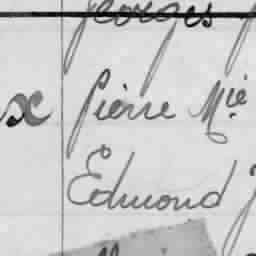 Georges
x Pierre Mie
Edmond J